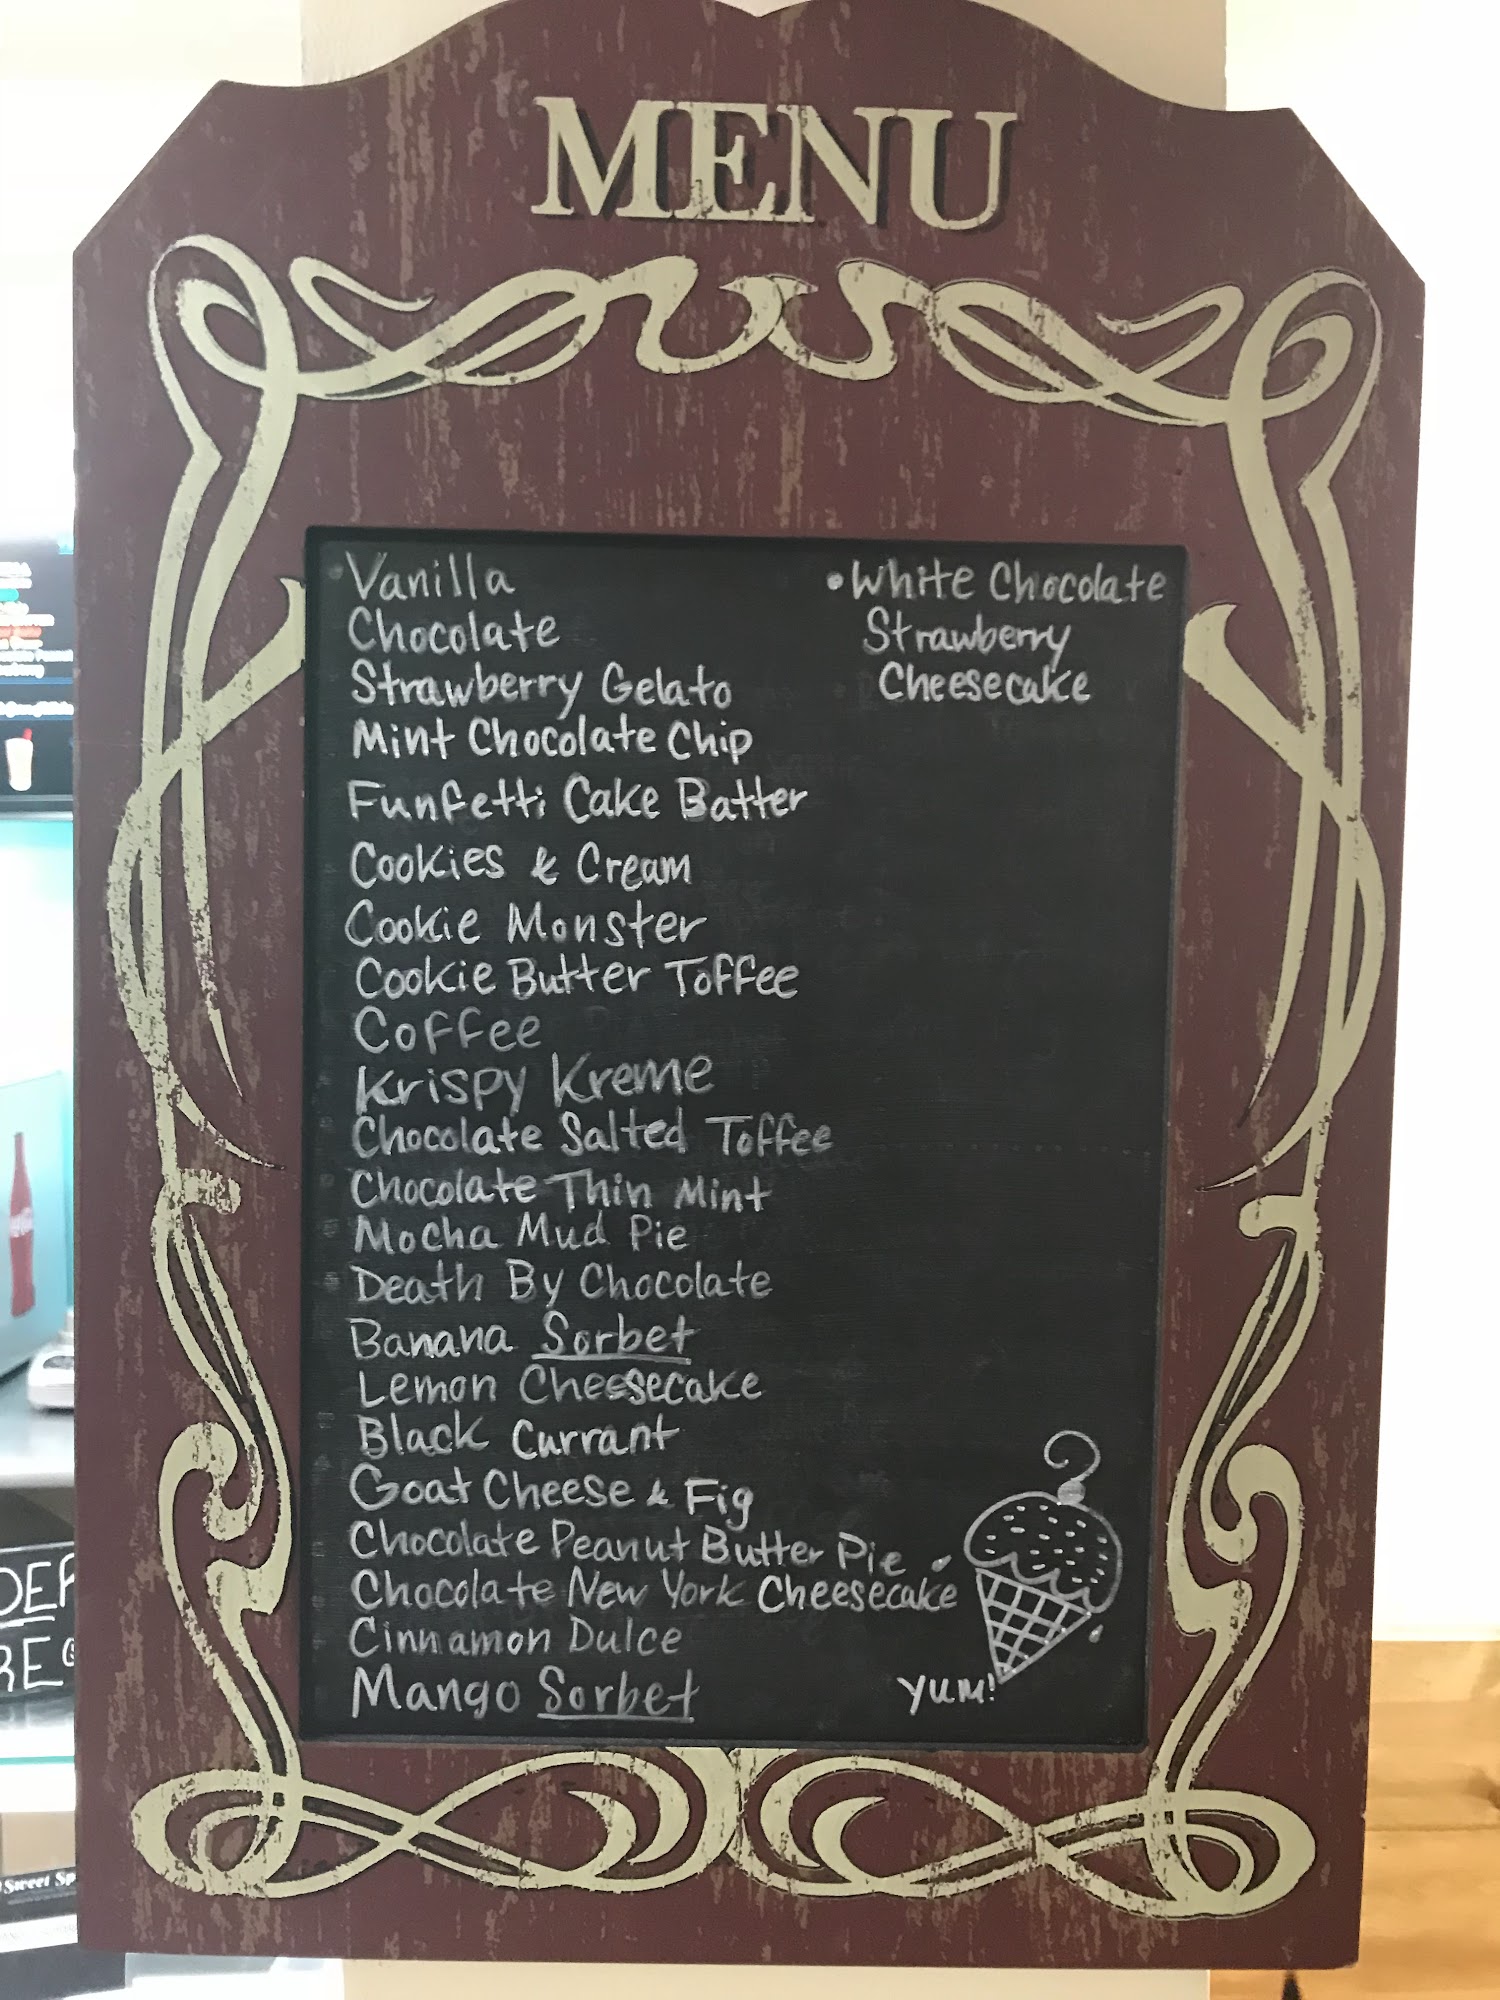 MENU
Vanilla
Chocolate
Strawberry Gelato
Mint Chocolate Chip
Funfetti Cake Batter
Cookies & Cream
Cookie Monster
Cookie Butter Toffee
Coffee
Krispy Kreme
Chocolate Salted Toffee
Chocolate Thin Mint
Mocha Mud Pie
Death By Chocolate
Banana Sorbet
Lemon Cheesecake
Black Currant
Goat Cheese & Fig
Chocolate Peanut Butter Pie
Chocolate New York Cheesecake
Cinnamon Dulce
Mango Sorbet
• White Chocolate
Strawberry
Cheesecake
YUM!
Sweet